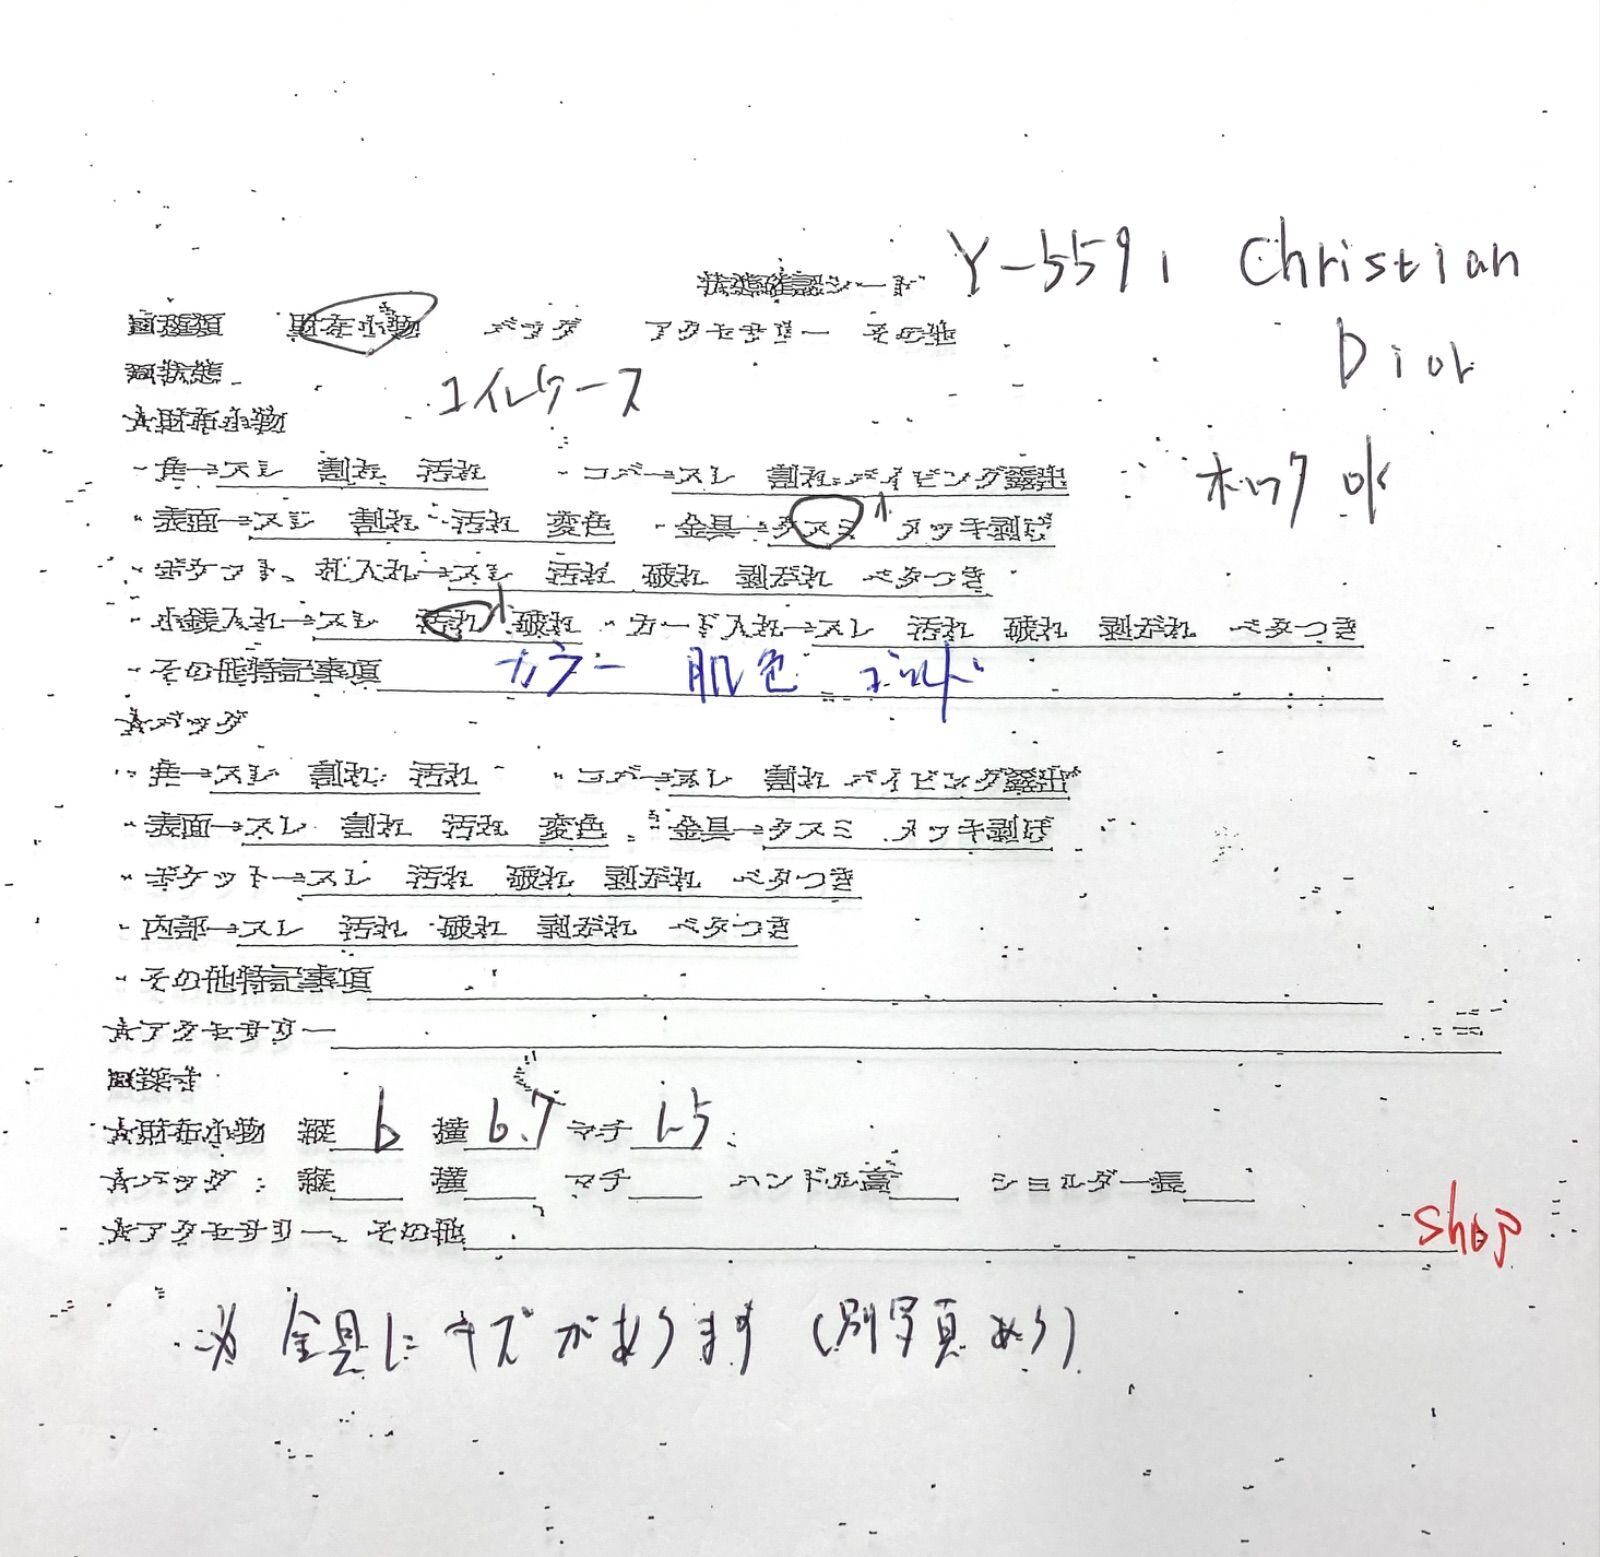 状態確認シート Y-5591 Christian Dior
■種類 財布小物 バッグ アクセサリー その他
■状態
コインケース
★財布小物
・角→スレ 割れ 汚れ ・コバ→スレ 割れ パイピング露出
ホック OK
・表面→スレ 割れ 汚れ 変色 ・金具→クスミ 小 メッキ剥げ
・ポケット、札入れ→スレ 汚れ 破れ 剥がれ ベタつき
・小銭入れ→スレ 汚れ 小 破れ ・カード入れ→スレ 汚れ 破れ 剥がれ ベタつき
・その他特記事項 カラー 肌色 ゴールド
★バッグ
・角→スレ 割れ 汚れ ・コバ→スレ 割れ パイピング露出
・表面→スレ 割れ 汚れ 変色 ・金具→クスミ メッキ剥げ
・ポケット→スレ 汚れ 破れ 剥がれ ベタつき
・内部→スレ 汚れ 破れ 剥がれ ベタつき
・その他特記事項
★アクセサリー
■採寸
★財布小物 縦 6 横 6.7 マチ 1.5
★バッグ: 縦 横 マチ ハンドル高 ショルダー長
★アクセサリー、その他
shop
※金具にキズがあります(別写真あり)